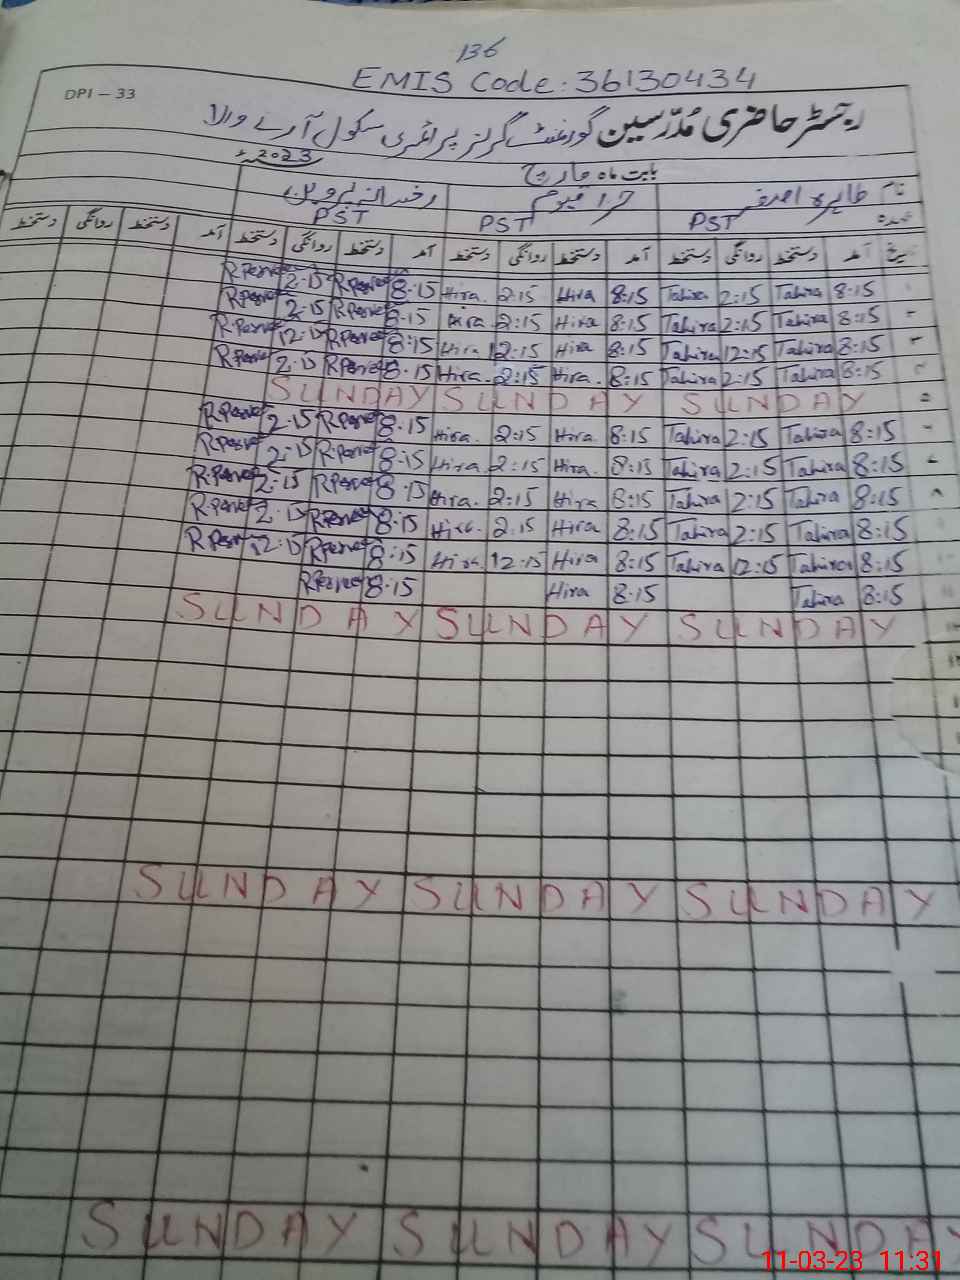 136
EMIS Code : 36130434
DPI – 33
رجسٹر حاضری مُدرّسین گورنمنٹ گرلز پرائمری سکول آرے والا
بابت ماہ مارچ 2023ء
نام طاہرہ اصغر حرا قیوم رخسانہ پروین
عہدہ PST PST PST
آمد دستخط روانگی دستخط آمد دستخط روانگی دستخط آمد دستخط روانگی دستخط آمد دستخط روانگی دستخط
8:15 Tahira 2:15 Tahira 8:15 Hira 2:15 Hira. 8.15 RPerve 2.15 RPerve
8:15 Tahira 2:15 Tahira 8:15 Hira 2:15 Hira. 8.15 RPerve 2.15 RPerve
8:15 Tahira 12:15 Tahira 8:15 Hira 12:15 Hira 8:15 RPerve 12.15 RPerve
8:15 Tahira 2:15 Tahira 8:15 Hira. 2:15 Hira. 8.15 RPerve 2.15 RPerve
SUNDAY SUNDAY SUNDAY
8:15 Tahira 2:15 Tahira 8:15 Hira 2:15 Hira. 8.15 RPerve 2.15 RPerve
8:15 Tahira 2:15 Tahira 8:15 Hira. 2:15 Hira. 8.15 RPerve 2.15 RPerve
8:15 Tahira 2:15 Tahira 8:15 Hira 2:15 Hira. 8.15 RPerve 2.15 RPerve
8:15 Tahira 2:15 Tahira 8:15 Hira 2.15 Hira. 8.15 RPerve 2.15 RPerve
8:15 Tahira 12:15 Tahira 8:15 Hira 12:15 Hira 8:15 RPerve 12.15 RPerve
8:15 Tahira 8.15 Hira 8.15 RPerve
SUNDAY SUNDAY SUNDAY
SUNDAY SUNDAY SUNDAY
SUNDAY SUNDAY SUNDAY
11-03-23 11:31